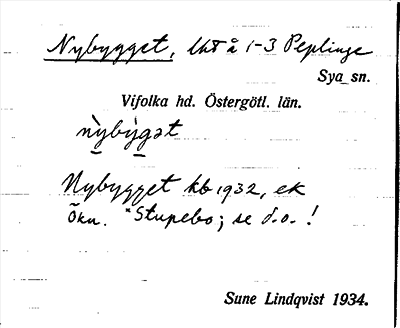 Nybygget, lht å 1-3 Peplinge
Sya sn.
Vifolka hd. Östergötl. län.
nỳbýgət
Nybygget kb 1932, ek
Ökn. "Stupebo; se d.o.!
Sune Lindqvist 1934.